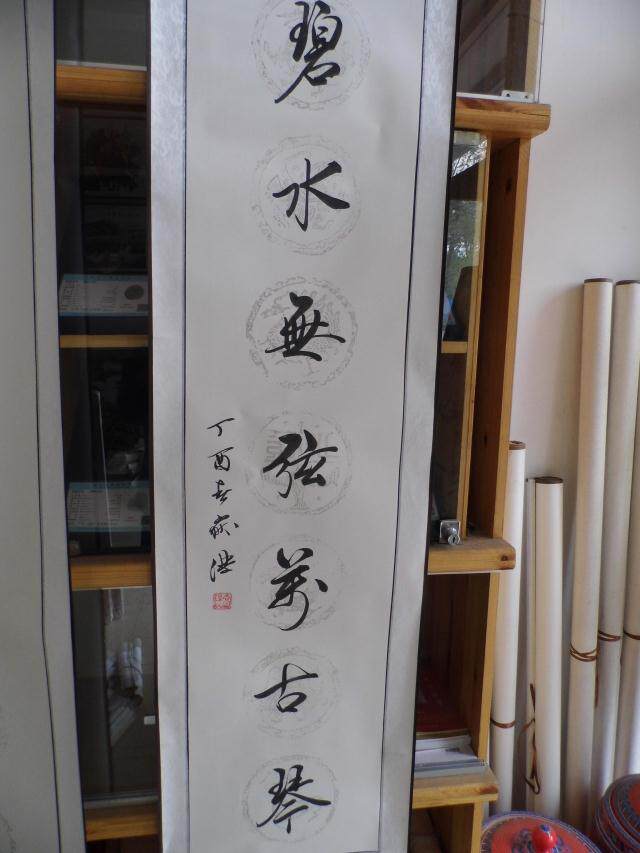 碧水無弦萬古琴
丁酉春